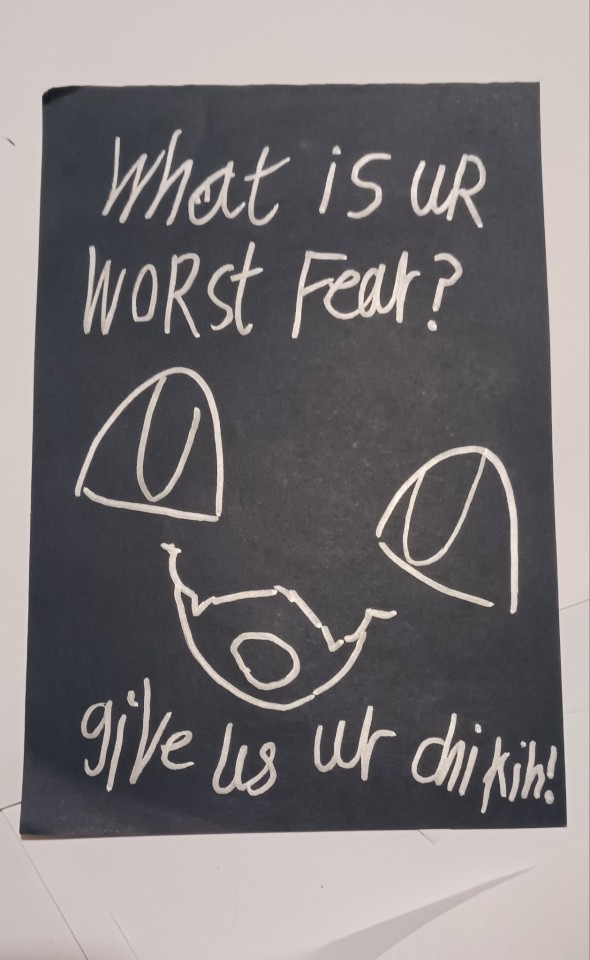 What is uR
WORSt Feat?
give us ur chikin!